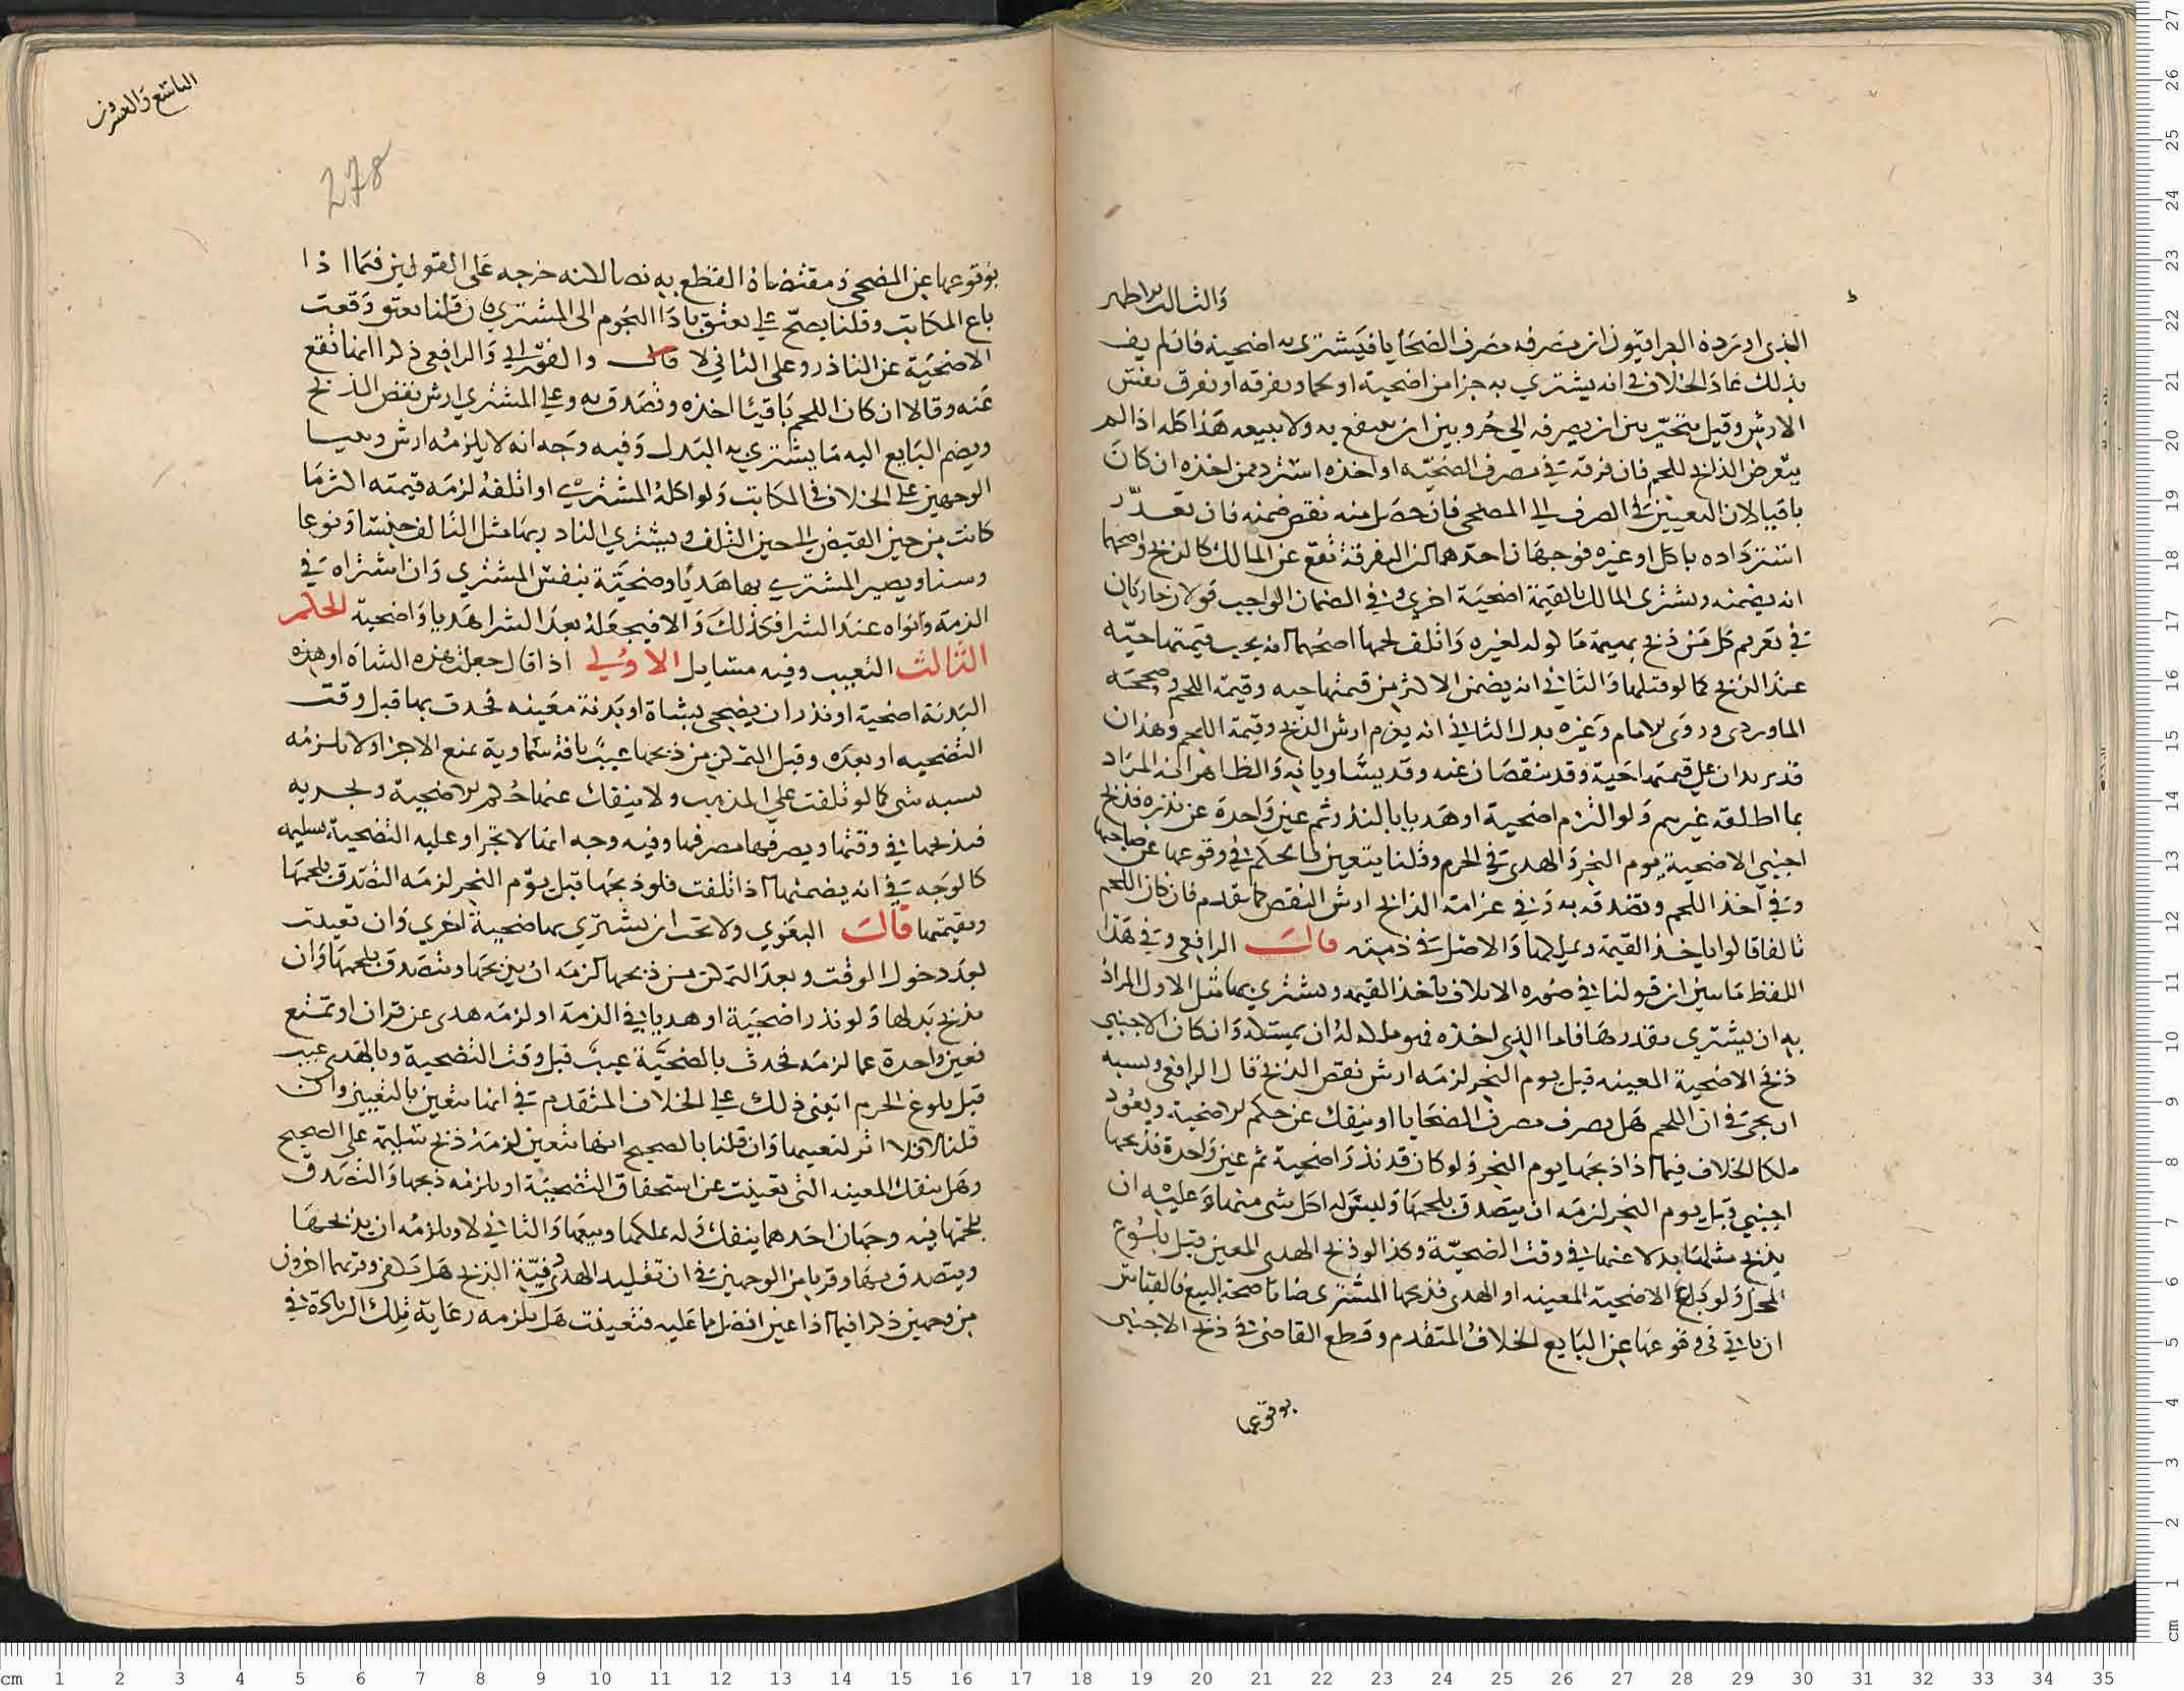 والثالث الاظهر
الذي اورده العراقيون ان مصرفه مصرف الضحايا فيشتري به اضحية فان لم يف
بذلك عاد الخلاف في انه يشتري به جزا من اضحية او لحما ويفرقه او يفرق نفس
الارش وقيل يتخير بين ان يصرفه الى جزو بين ان ينتفع به ولا يبيعه هذا كله اذا لم
يتعرض الذابح للحم فان فرقه في مصرف الضحية او اخذه استرد ممن اخذه ان كان
باقيا لان التعيين في الصرف الى المضحي فان حصل منه نقص ضمنه فان تعذر
استرداده باكل او غيره فوجهان احدهما ان التفرقة تقع عن المالك كالذبح واصحهما
انه يضمنه ويشتري المالك بالقيمة اضحية اخري وفي الضمان الواجب قولان جاريان
في تغريم كل من ذبح بهيمة ماكولة لغيره واتلف لحمها اصحهما انه يجب قيمتها حية
عند الذبح كما لو قتلها والثاني انه يضمن الاكثر من قيمتها حية وقيمة اللحم وصححه
الماوردي وروى الامام وغيره بدل الثاني انه يغرم ارش الذبح وقيمة اللحم وهذان
قد يزيدان على قيمتها حية وقد ينقصان عنه وقد يتساويانه والظاهر انه المراد
بما اطلقه غيرهم ولو التزم اضحية او هديا بالنذر ثم عين واحدة عن نذره فذبح
اجنبي الاضحية يوم النحر والهدي في الحرم وقلنا يتعين فالحكم في وقوعها عن صاحبها
وفي اخذ اللحم وتصدقه به وفي غرامة الذابح ارش النقص كما تقدم فان كان اللحم
تالفا قالوا ياخذ القيمة ويملكها والاصل في ذمته قال الرافعي وفي هذا
اللفظ ما يبين ان قولنا في صورة الاتلاف ياخذ القيمة ويشتري بها مثل الاول المراد
به ان يشتري بقدرها فاما الذي اخذه فهو ملكه له ان يمسكه وان كان الاجنبي
ذبح الاضحية المعينة قبل يوم النحر لزمه ارش نقص الذبح قال الرافعي ويشبه
ان يجي في ان اللحم هل يصرف مصرف الضحايا او ينفك عن حكم الاضحية ويعود
ملكا الخلاف فيما اذا ذبحها يوم النحر ولو كان قد نذر اضحية ثم عين واحدة فذبحها
اجنبي قبل يوم النحر لزمه ان يتصدق بلحمها وليس له اكل شي منها وعليه ان
يذبح مثلها بدلا عنها في وقت الضحية وكذا لو ذبح الهدي المعين قبل بلوغ
المحل ولو باع الاضحية المعينة او الهدي فذبحها المشتري ضانا صحة البيع فالقياس
ان ياتي في وقوعها عن البايع الخلاف المتقدم وقطع القاضي في ذبح الاجنبي
بوقوعها
التاسع والعشرون
278
بوقوعها عن المضحي ومقتضاه القطع به نصا لانه خرجه على القولين فيما اذا
باع المكاتب وقلنا يصح على يعتق باداء النجوم الى المشتري ان قلنا يعتق وقعت
الاضحية عن الناذر وعلى الثاني لا قال والفوراني والرافعي ذكرا انها تقع
عنه وقالا ان كان اللحم باقيا اخذه وتصدق به وعلى المشتري ارش نقص الذبح
ويضم البايع اليه ما يشتري به البدل وفيه وجه انه لا يلزمه ارش وبنيا
الوجهين على الخلاف في المكاتب ولو اكله المشتري او اتلفه لزمه قيمته اكثر ما
كانت من حين القبض الى حين التلف ويشتري الناذر بها مثل التالف جنسا ونوعا
وسنا ويصير المشتري بها هديا وضحية بنفس المشتري وان اشتراه في
الذمة ونواه عند الشرا فكذلك والا فيجعله بعد الشرا هديا واضحية الحكم
الثالث التعييب وفيه مسايل الاولى اذا قال جعلت هذه الشاة او هذه
البدنة اضحية او نذر ان يضحي بشاة او بدنة معينه فحدث بها قبل وقت
التضحيه او بعده وقبل التمكن من ذبحها عيب بافة سماوية يمنع الاجزا ولا يلزمه
بسببه شي كما لو تلفت على المذهب ولا ينفك عنها حكم الاضحية وتجزيه
فيذبحها في وقتها ويصرفها مصرفها وفيه وجه انها لا تجزا وعليه التضحية بسليمه
كالوجه في انه يضمنها اذا تلفت فلو ذبحها قبل يوم النحر لزمه التصدق بلحمها
وبقيمتها قال البغوي ولا يجب ان يشتري بها ضحية اخري وان تعيبت
بعد دخول الوقت وبعد التمكن من ذبحها لزمه ان يذبحها ويتصدق بلحمها وان
يذبح بدلها ولو نذر اضحية او هديا في الذمة او لزمه هدي عن قران او تمتع
فعين واحدة عما لزمه فحدث بالضحية عيب قبل وقت التضحية وبالهدي عيب
قبل بلوغ الحرم انبنى ذلك على الخلاف المتقدم في انها تتعين بالتعيين وان
قلنا لا فلا اثر لتعييبها وان قلنا بالصحيح انها تتعين لزمه ذبح سليمة على الصحيح
وهل ينفك المعينه التي تعيبت عن استحقاق التضحية او يلزمه ذبحها والتصدق
بلحمها فيه وجهان احدهما ينفك وله تملكها وبيعها والثاني لا ويلزمه ان يذبحها
ويتصدق بها وقربا من الوجهين في ان تقليد الهدي ونية الذبح هل وقربهما اخرون
من وجهين ذكرا فيما اذا عين افضل ما عليه فتعيبت هل يلزمه رعاية تلك الزيادة في